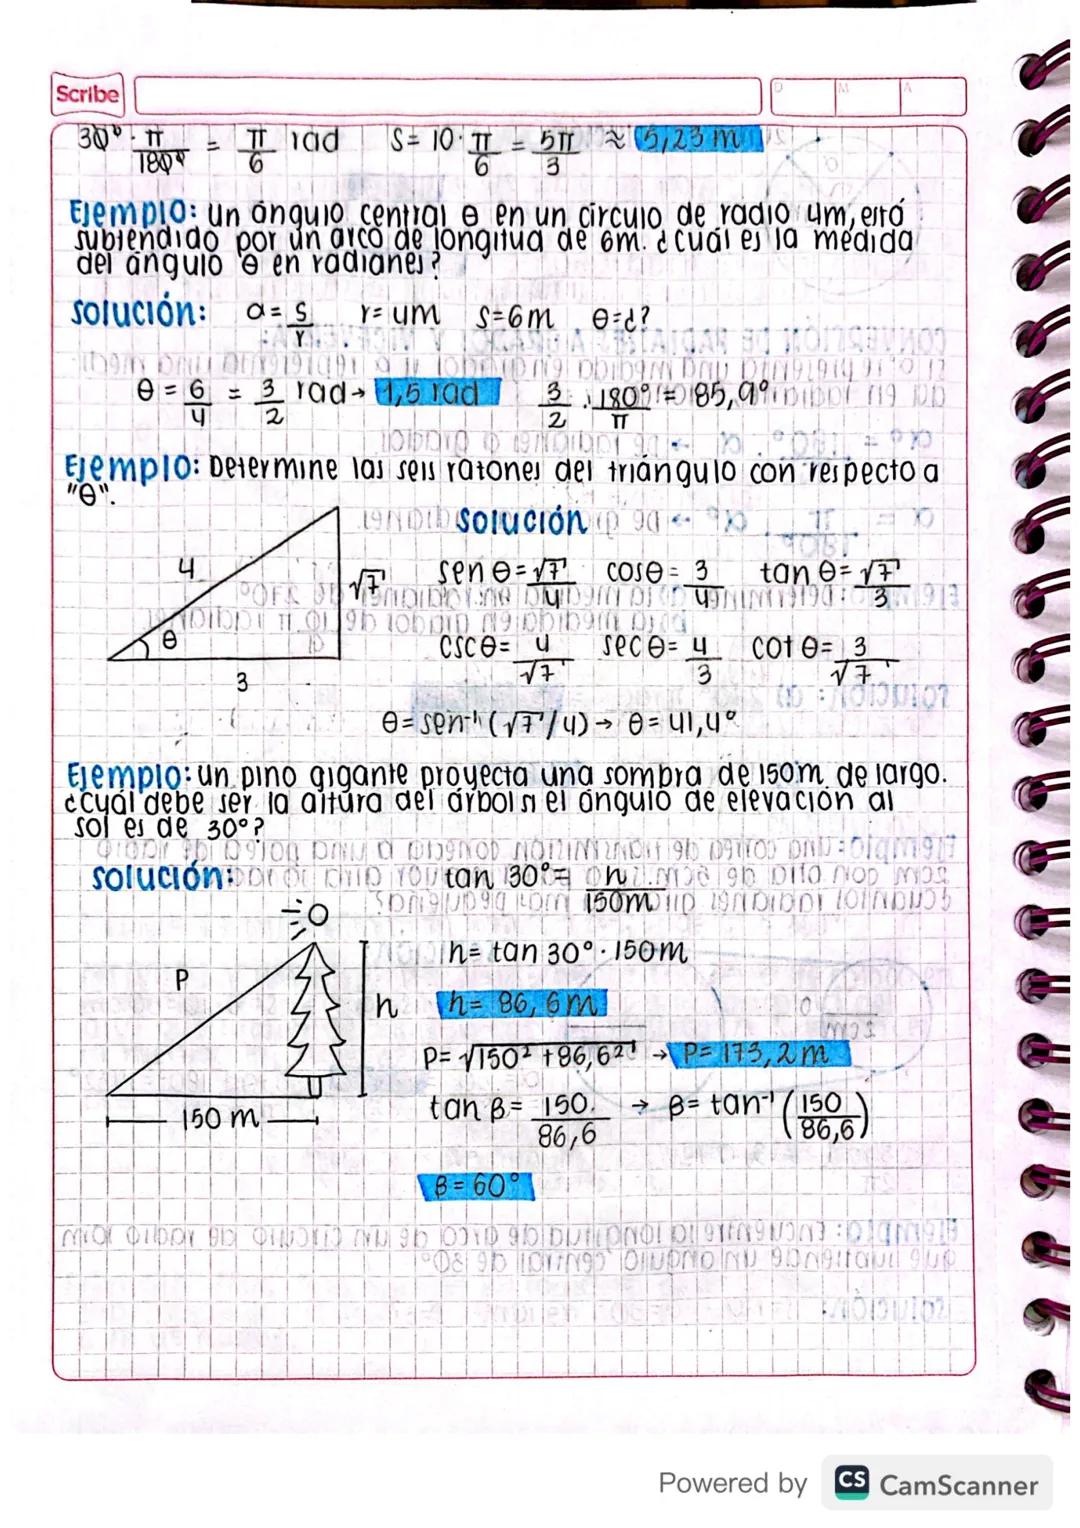 Scribe
D M A
30° · π/180° = π/6 rad S = 10 · π/6 = 5π/3 ≈ 5,23 m
Ejemplo: un ángulo central θ en un círculo de radio 4m, está
subtendido por un arco de longitud de 6m. ¿Cuál es la medida
del ángulo θ en radianes?
Solución: α = S/r r = 4m S = 6m θ = ¿?
θ = 6/4 = 3/2 rad → 1,5 rad 3/2 · 180°/π = 85,9°
Ejemplo: Determine las seis razones del triángulo con respecto a
"θ".
Solución
4 θ 3 √7
sen θ = √7/4 cos θ = 3/4 tan θ = √7/3
csc θ = 4/√7 sec θ = 4/3 cot θ = 3/√7
θ = sen⁻¹ (√7/4) → θ = 41,4°
Ejemplo: un pino gigante proyecta una sombra de 150m de largo.
¿Cuál debe ser la altura del árbol si el ángulo de elevación al
sol es de 30°?
Solución: tan 30° = h/150m
h = tan 30° · 150m
P h
h = 86,6 m
P = √150² + 86,6² → P = 173,2 m
150 m
tan β = 150/86,6 → β = tan⁻¹ (150/86,6)
β = 60°
Powered by CS CamScanner